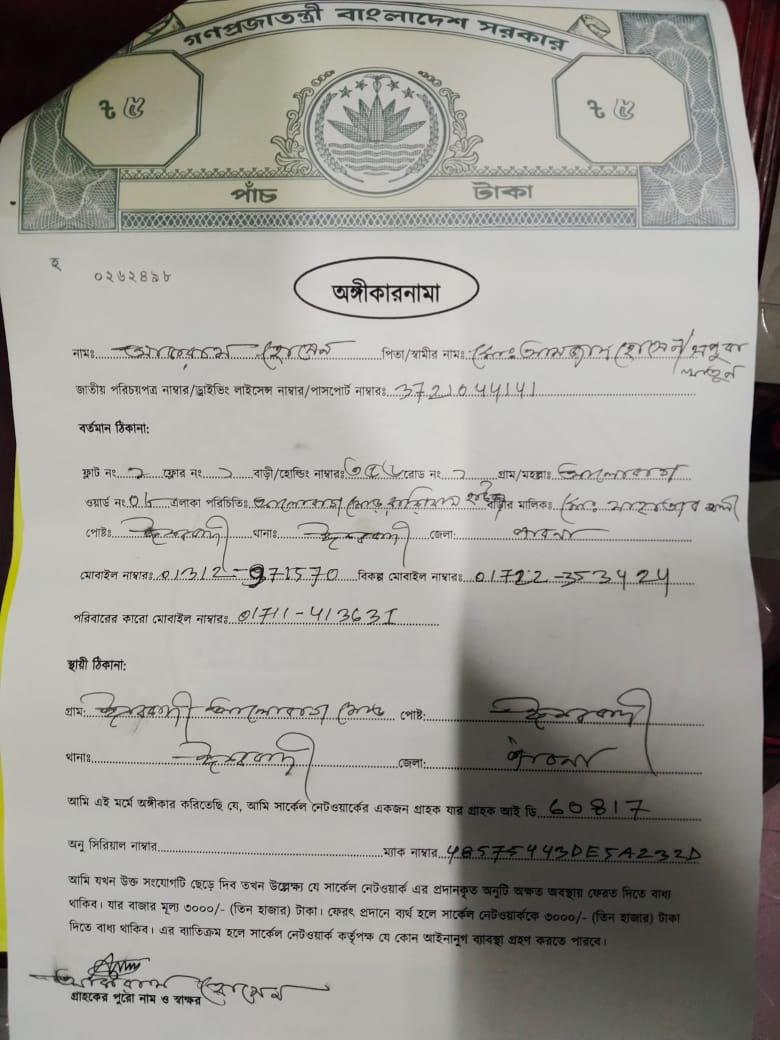 গণপ্রজাতন্ত্রী বাংলাদেশ সরকার
ট ৫ ট ৫
পাঁচ টাকা
হ ০২৬২৪৯৮
অঙ্গীকারনামা
নামঃ হোসেন পিতা/স্বামীর নামঃ মোঃ আমজাদ হোসেন/
খাতুন
জাতীয় পরিচয়পত্র নাম্বার/ড্রাইভিং লাইসেন্স নাম্বার/পাসপোর্ট নাম্বারঃ 3721044141
বর্তমান ঠিকানা:
ফ্লাট নং ২ ফ্লোর নং ২ বাড়ী/হোল্ডিং নাম্বারঃ রোড নং ২ গ্রাম/মহল্লাঃ
ওয়ার্ড নং এলাকা পরিচিতিঃ বাড়ীর মালিকঃ মোঃ আলী
পোষ্টঃ ঈশ্বরদী থানাঃ ঈশ্বরদী জেলা: পাবনা
মোবাইল নাম্বারঃ 01312-971570 বিকল্প মোবাইল নাম্বারঃ 01722-353424
পরিবারের কারো মোবাইল নাম্বারঃ 01711-413631
স্থায়ী ঠিকানা:
গ্রাম: ঈশ্বরদী পোষ্ট: ঈশ্বরদী
থানাঃ ঈশ্বরদী জেলা: পাবনা
আমি এই মর্মে অঙ্গীকার করিতেছি যে, আমি সার্কেল নেটওয়ার্কের একজন গ্রাহক যার গ্রাহক আই ডি 60817
অনু সিরিয়াল নাম্বার ম্যাক নাম্বার 48575443DE5A232D
আমি যখন উক্ত সংযোগটি ছেড়ে দিব তখন উল্লেক্ষ্য যে সার্কেল নেটওয়ার্ক এর প্রদানকৃত অনুটি অক্ষত অবস্থায় ফেরত দিতে বাধ্য
থাকিব। যার বাজার মূল্য ৩০০০/- (তিন হাজার) টাকা। ফেরৎ প্রদানে ব্যর্থ হলে সার্কেল নেটওয়ার্ককে ৩০০০/- (তিন হাজার) টাকা
দিতে বাধ্য থাকিব। এর ব্যতিক্রম হলে সার্কেল নেটওয়ার্ক কর্তৃপক্ষ যে কোন আইনানুগ ব্যাবস্থা গ্রহণ করতে পারবে।
হোসেন
গ্রাহকের পুরো নাম ও স্বাক্ষর